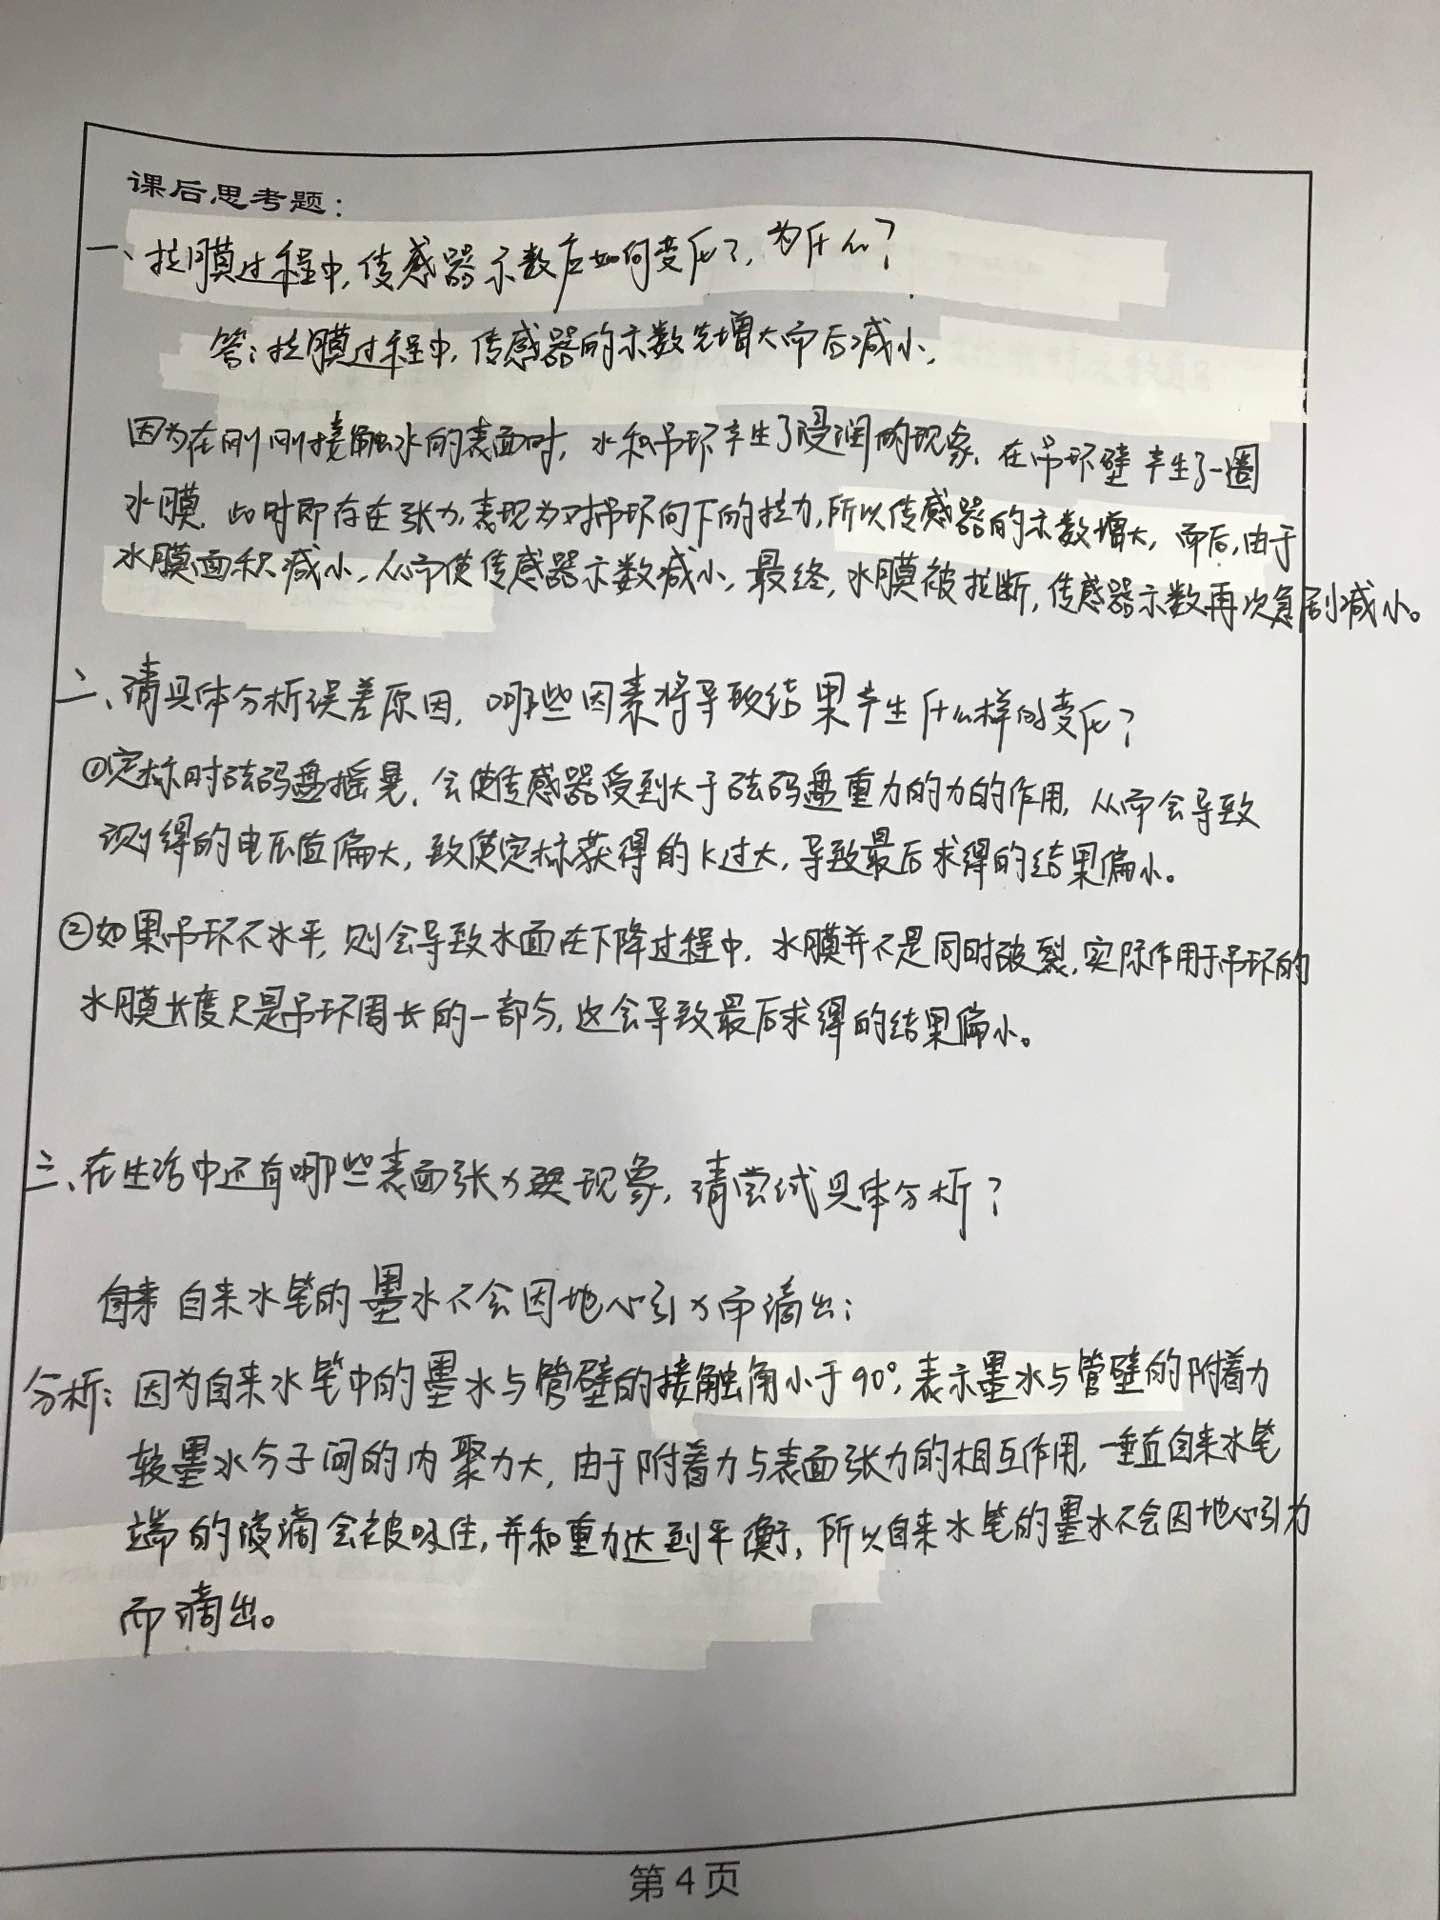 课后思考题：
一、拉膜过程中，传感器示数应如何变化？，为什么？
答：拉膜过程中，传感器的示数先增大而后减小，
因为在刚刚接触水的表面时，水和吊环产生了浸润的现象，在吊环壁产生了一圈
水膜，此时即存在张力，表现为对吊环向下的拉力，所以传感器的示数增大，而后，由于
水膜面积减小，从而使传感器示数减小，最终，水膜被拉断，传感器示数再次急剧减小。
二、请具体分析误差原因，哪些因素将导致结果产生什么样的变化？
①定标时砝码盘摇晃，会使传感器受到大于砝码盘重力的力的作用，从而会导致
测得的电压值偏大，致使定标获得的K过大，导致最后求得的结果偏小。
②如果吊环不水平，则会导致水面在下降过程中，水膜并不是同时破裂，实际作用于吊环的
水膜长度只是吊环周长的一部分，这会导致最后求得的结果偏小。
三、在生活中还有哪些表面张力现象，请尝试具体分析？
自来水笔的墨水不会因地心引力而滴出：
分析：因为自来水笔中的墨水与管壁的接触角小于90°，表示墨水与管壁的附着力
较墨水分子间的内聚力大，由于附着力与表面张力的相互作用，一垂直自来水笔
端的液滴会被吸住，并和重力达到平衡，所以自来水笔的墨水不会因地心引力
而滴出。
第4页